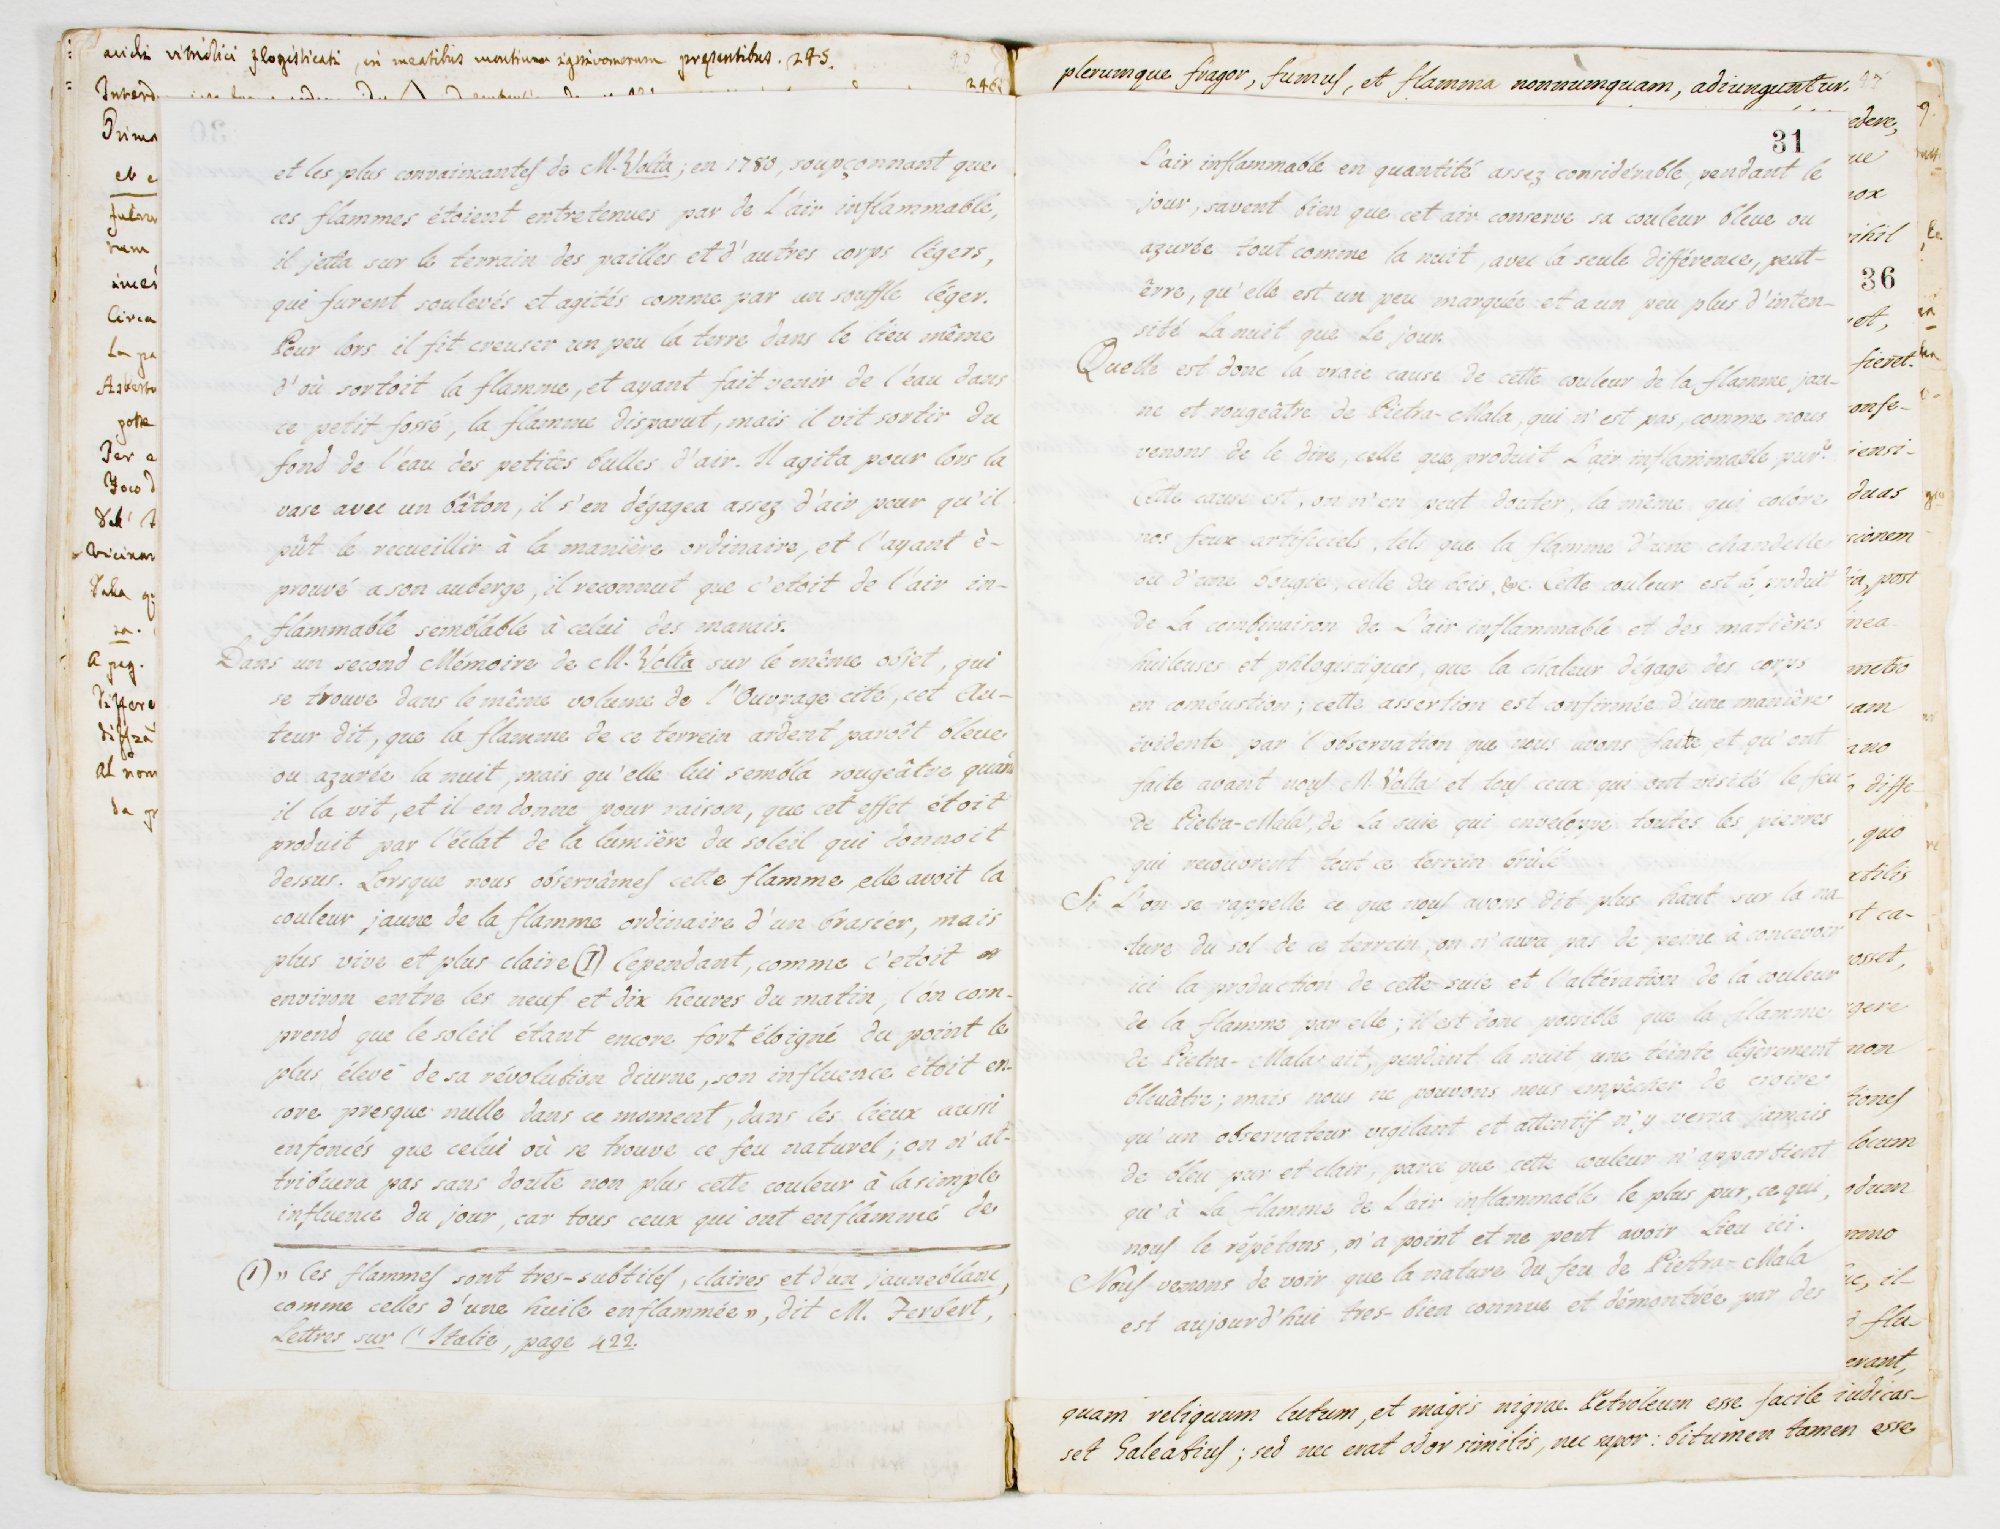 acidi vitriolici flogisticati, in meatibus montium ignivomorum præsentibus. 245.
246
et les plus convaincantes de M. Volta; en 1780, soupçonnant que
ces flammes étoient entretenues par de l'air inflammable,
il jetta sur le terrain des pailles et d'autres corps légers,
qui furent soulevés et agités comme par un souffle léger.
Pour lors il fit creuser un peu la terre dans le lieu même
d'où sortoit la flamme, et ayant fait venir de l'eau dans
ce petit fossé, la flamme disparut, mais il vit sortir du
fond de l'eau des petites bulles d'air. Il agita pour lors la
vase avec un bâton, il s'en dégagea assez d'air pour qu'il
pût le recueillir à la manière ordinaire, et l'ayant è-
prouvé a son auberge, il reconnut que c'etoit de l'air in-
flammable semblable à celui des marais.
Dans un second Mémoire de M. Volta sur le même objet, qui
se trouve dans le même volume de l'Ouvrage cité, cet Au-
teur dit, que la flamme de ce terrein ardent paroît bleue
ou azurée la nuit, mais qu'elle lui sembla rougeâtre quand
il la vit, et il en donne pour raison, que cet effet étoit
produit par l'éclat de la lumière du soleil qui donnoit
dessus. Lorsque nous observâmes cette flamme, elle avoit la
couleur jaune de la flamme ordinaire d'un brasier, mais
plus vive et plus claire (1) Cependant, comme c'etoit
environ entre les neuf et dix heures du matin, l'on com-
prend que le soleil étant encore fort éloigné du point le
plus élevé de sa révolution diurne, son influence étoit en-
core presque nulle dans ce moment, dans les lieux aussi
enfoncés que celui où se trouve ce feu naturel; on n'at-
tribuera pas sans doute non plus cette couleur à la simple
influence du jour, car tous ceux qui ont enflammé de
(1) » Ces flammes sont tres-subtiles, claires et d'un jaune blanc,
comme celles d'une huile enflammée », dit M. Ferbert,
Lettres sur l'Italie, page 422.
plerumque fragor, fumus, et flamma nonnumquam, adiunguntur.
31
L'air inflammable en quantité assez considérable, pendant le
jour, savent bien que cet air conserve sa couleur bleue ou
azurée tout comme la nuit, avec la seule différence, peut-
être, qu'elle est un peu marquée et a un peu plus d'inten-
sité la nuit que le jour.
Quelle est donc la vraie cause de cette couleur de la flamme jau-
ne et rougeâtre de Pietra-Mala, qui n'est pas, comme nous
venons de le dire, celle que produit l'air inflammable pur?
Cette cause est, on n'en peut douter, la même qui colore
nos feux artificiels, tels que la flamme d'une chandelle
ou d'une bougie, celle du bois, &c. Cette couleur est le produit
de la combinaison de l'air inflammable et des matières
huileuses et phlogistiques, que la chaleur dégage des corps
en combustion; cette assertion est confirmée d'une manière
évidente par l'observation que nous avons faite et qu'ont
faite avant nous M. Volta et tous ceux qui ont visité le feu
de Pietra-Mala, de la suie qui enveloppe toutes les pierres
qui recouvrent tout ce terrein brûlé
Si l'on se rappelle ce que nous avons dit plus haut sur la na-
ture du sol de ce terrein, on n'aura pas de peine à concevoir
ici la production de cette suie et l'altération de la couleur
de la flamme par elle; il est donc possible que la flamme
de Pietra-Mala ait, pendant la nuit une teinte légèrement
bleuâtre; mais nous ne pouvons nous empêcher de croire
qu'un observateur vigilant et attentif n'y verra jamais
de bleu pur et clair, parce que cette couleur n'appartient
qu'à la flamme de l'air inflammable le plus pur, ce qui,
nous le répétons, n'a point et ne peut avoir lieu ici.
Nous venons de voir que la nature du feu de Pietra-Mala
est aujourd'hui tres-bien connue et démontrée par des
36
quam reliquum lutum, et magis nigrae. Petroleum esse facile iudicas-
set Galeatius; sed nec erat odor similis, nec sapor: bitumen tamen esse